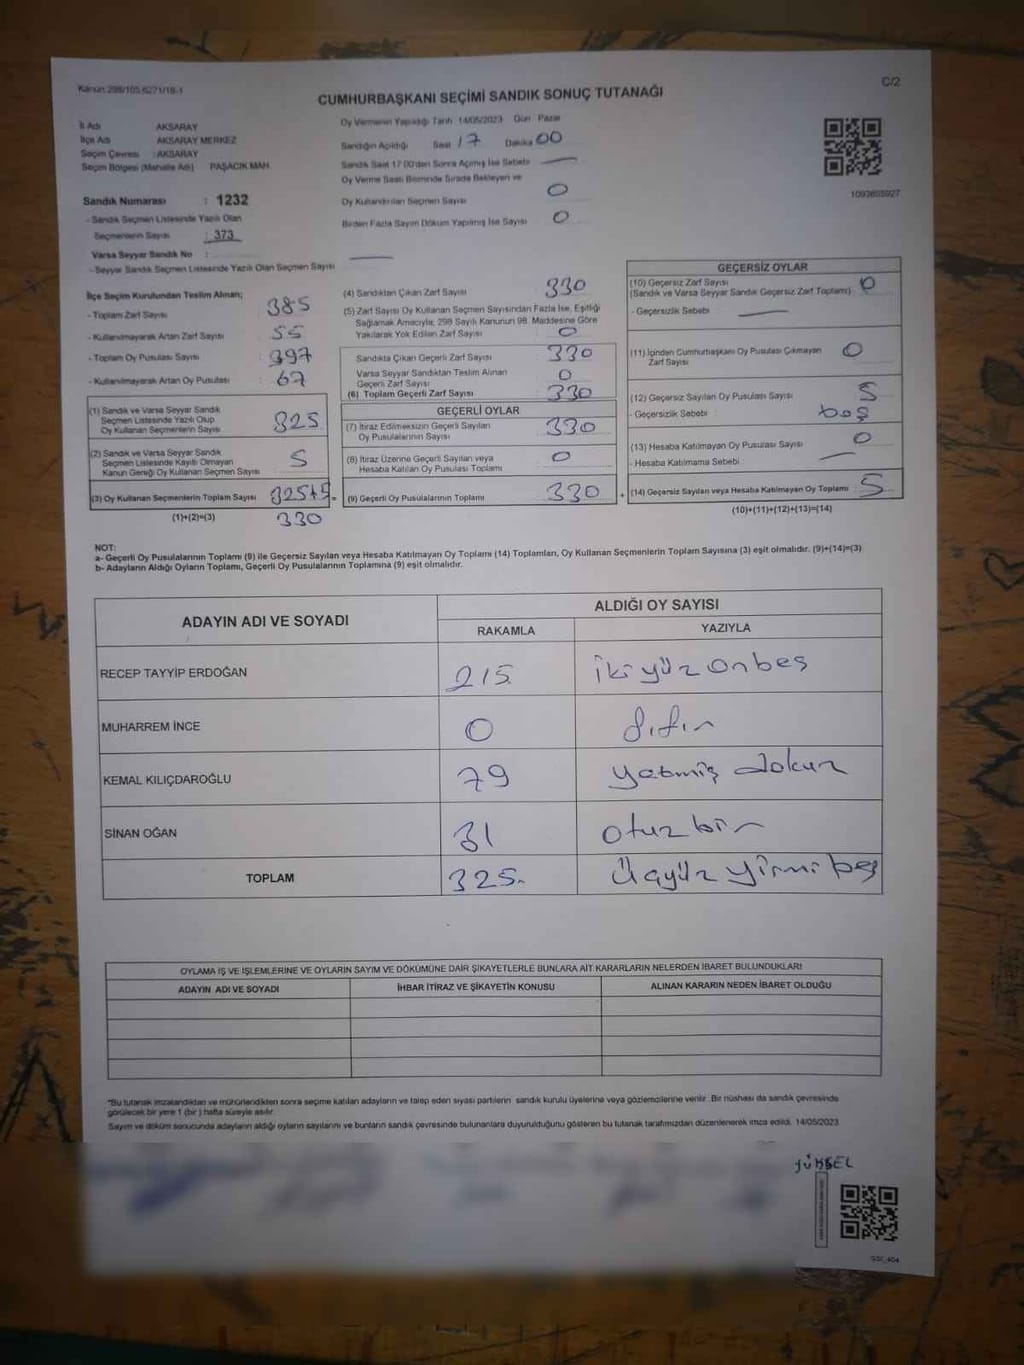 Kanun:298/105;6271/18-1
C/2
CUMHURBAŞKANI SEÇİMİ SANDIK SONUÇ TUTANAĞI
İl Adı AKSARAY
İlçe Adı AKSARAY MERKEZ
Seçim Çevresi : AKSARAY
Seçim Bölgesi (Mahalle Adı) PAŞACIK MAH.
Sandık Numarası : 1232
- Sandık Seçmen Listesinde Yazılı Olan
Seçmenlerin Sayısı : 373
Varsa Seyyar Sandık No :
- Seyyar Sandık Seçmen Listesinde Yazılı Olan Seçmen Sayısı
Oy Vermenin Yapıldığı Tarih 14/05/2023 Gün Pazar
Sandığın Açıldığı Saat 17 Dakika 00
Sandık Saat 17:00'den Sonra Açılmış İse Sebebi
Oy Verme Saati Bitiminde Sırada Bekleyen ve
Oy Kullandırılan Seçmen Sayısı 0
Birden Fazla Sayım Döküm Yapılmış İse Sayısı 0
1093605927
İlçe Seçim Kurulundan Teslim Alınan;
- Toplam Zarf Sayısı 385
- Kullanılmayarak Artan Zarf Sayısı 55
- Toplam Oy Pusulası Sayısı 397
- Kullanılmayarak Artan Oy Pusulası : 67
(1) Sandık ve Varsa Seyyar Sandık
Seçmen Listesinde Yazılı Olup
Oy Kullanan Seçmenlerin Sayısı 325
(2) Sandık ve Varsa Seyyar Sandık
Seçmen Listesinde Kayıtlı Olmayan
Kanun Gereği Oy Kullanan Seçmen Sayısı 5
(3) Oy Kullanan Seçmenlerin Toplam Sayısı 325+5 =
(1)+(2)=(3) 330
(4) Sandıktan Çıkan Zarf Sayısı 330
(5) Zarf Sayısı Oy Kullanan Seçmen Sayısından Fazla İse, Eşitliği
Sağlamak Amacıyla, 298 Sayılı Kanunun 98. Maddesine Göre
Yakılarak Yok Edilen Zarf Sayısı 0
Sandıkta Çıkan Geçerli Zarf Sayısı 330
Varsa Seyyar Sandıktan Teslim Alınan
Geçerli Zarf Sayısı 0
(6) Toplam Geçerli Zarf Sayısı 330
GEÇERLİ OYLAR
(7) İtiraz Edilmeksizin Geçerli Sayılan
Oy Pusulalarının Sayısı 330
(8) İtiraz Üzerine Geçerli Sayılan veya
Hesaba Katılan Oy Pusulası Toplamı 0
(9) Geçerli Oy Pusulalarının Toplamı 330 +
GEÇERSİZ OYLAR
(10) Geçersiz Zarf Sayısı
(Sandık ve Varsa Seyyar Sandık Geçersiz Zarf Toplamı) 0
- Geçersizlik Sebebi :
(11) İçinden Cumhurbaşkanı Oy Pusulası Çıkmayan
Zarf Sayısı 0
(12) Geçersiz Sayılan Oy Pusulası Sayısı 5
- Geçersizlik Sebebi : boş
(13) Hesaba Katılmayan Oy Pusulası Sayısı 0
- Hesaba Katılmama Sebebi :
(14) Geçersiz Sayılan veya Hesaba Katılmayan Oy Toplamı 5
(10)+(11)+(12)+(13)=(14)
NOT:
a- Geçerli Oy Pusulalarının Toplamı (9) ile Geçersiz Sayılan veya Hesaba Katılmayan Oy Toplamı (14) Toplamları, Oy Kullanan Seçmenlerin Toplam Sayısına (3) eşit olmalıdır. (9)+(14)=(3)
b- Adayların Aldığı Oyların Toplamı, Geçerli Oy Pusulalarının Toplamına (9) eşit olmalıdır.
ADAYIN ADI VE SOYADI
ALDIĞI OY SAYISI
RAKAMLA YAZIYLA
RECEP TAYYİP ERDOĞAN 215 iki yüz on beş
MUHARREM İNCE 0 Sıfır
KEMAL KILIÇDAROĞLU 79 yetmiş dokuz
SİNAN OĞAN 31 otuz bir
TOPLAM 325. Üçyüz yirmi beş
OYLAMA İŞ VE İŞLEMLERİNE VE OYLARIN SAYIM VE DÖKÜMÜNE DAİR ŞİKAYETLERLE BUNLARA AİT KARARLARIN NELERDEN İBARET BULUNDUKLARI
ADAYIN ADI VE SOYADI İHBAR İTİRAZ VE ŞİKAYETİN KONUSU ALINAN KARARIN NEDEN İBARET OLDUĞU
*Bu tutanak imzalandıktan ve mühürlendikten sonra seçime katılan adayların ve talep eden siyasi partilerin sandık kurulu üyelerine veya gözlemcilerine verilir. Bir nüshası da sandık çevresinde
görülecek bir yere 1 (bir) hafta süreyle asılır.
Sayım ve döküm sonucunda adayların aldığı oyların sayılarını ve bunların sandık çevresinde bulunanlara duyurulduğunu gösteren bu tutanak tarafımızdan düzenlenerek imza edildi. 14/05/2023
YÜKSEL